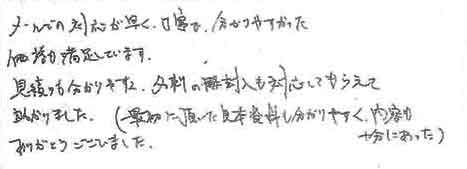 メールでの対応が早く、丁寧で、分かりやすかった
価格も満足しています。
見積りも分かりやすく、名刺の 封入も対応してもらえて
助かりました。(最初に頂いた見本資料も分かりやすく、内容も
ありがとうございました。 十分にあった)